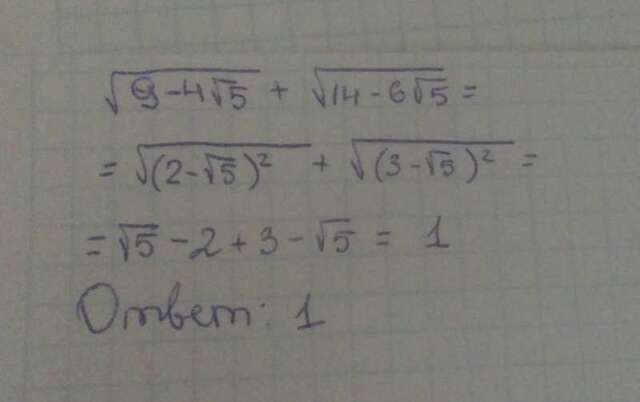 √(9-4√5) + √(14-6√5) =
= √((2-√5)²) + √((3-√5)²) =
= √5 - 2 + 3 - √5 = 1
Ответ: 1